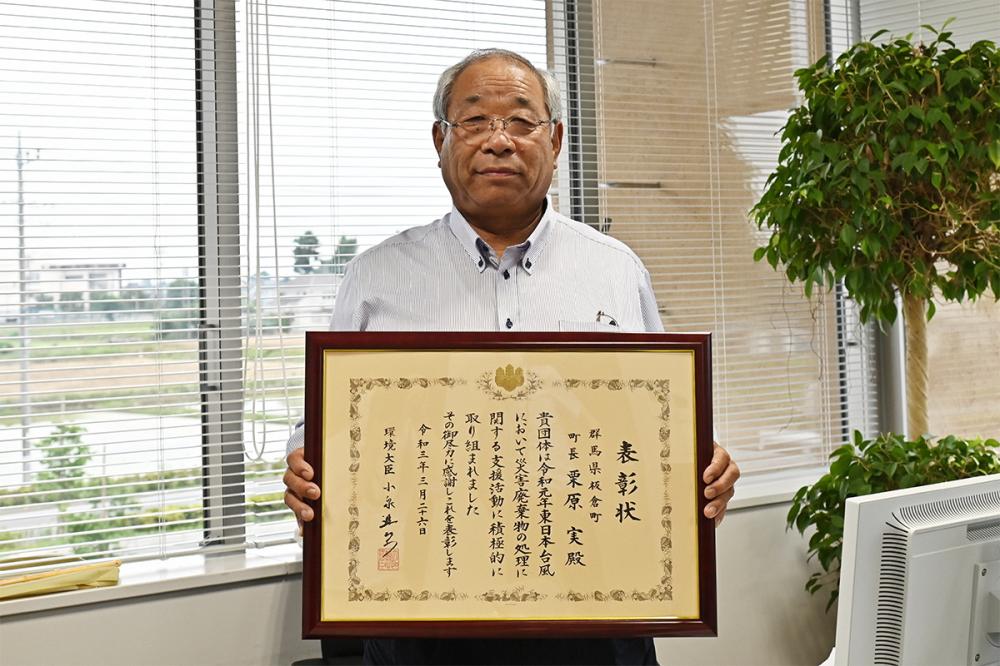 表彰状
群馬県板倉町
町長 栗原 実 殿
貴団体は令和元年東日本台風
において災害廃棄物の処理に
関する支援活動に積極的に
取り組まれました
その御尽力に感謝しこれを表彰します
令和三年三月二十六日
環境大臣 小泉進次郎